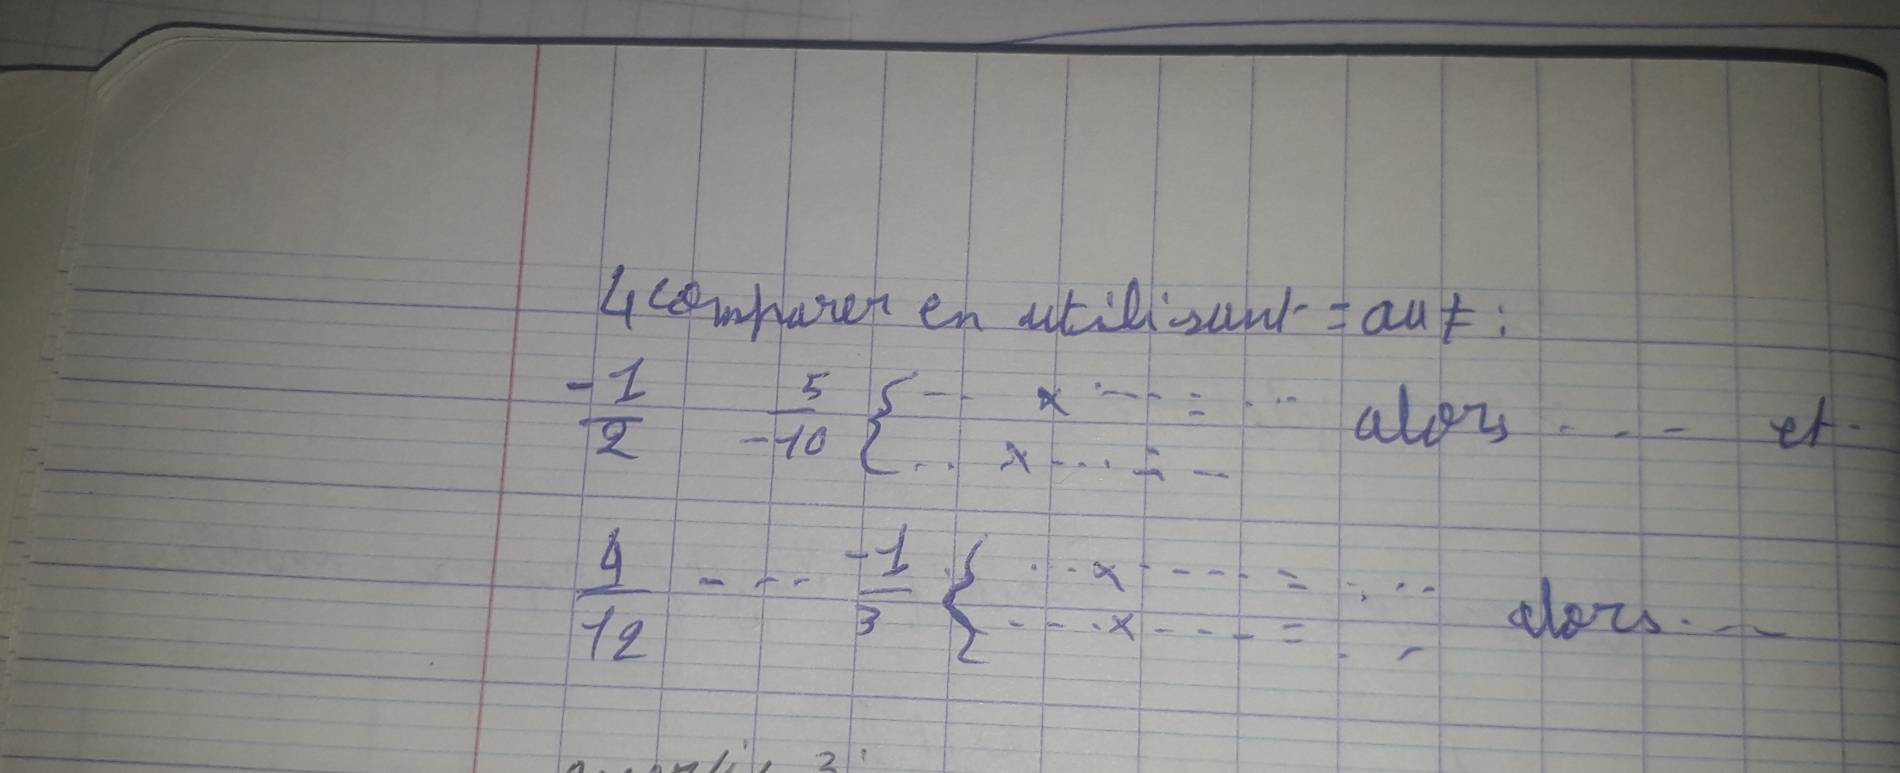 4 comparer en utilisant = au ≠ :
-1/2 5/-10 { --- x ---- = ... alors .... et .
... x .... = --
4/12 - --- -1/3 { ...x ---- = .... alors. ---
---.x- --- = . -